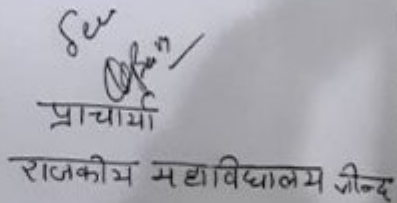 प्राचार्या
राजकीय महाविद्यालय जीन्द